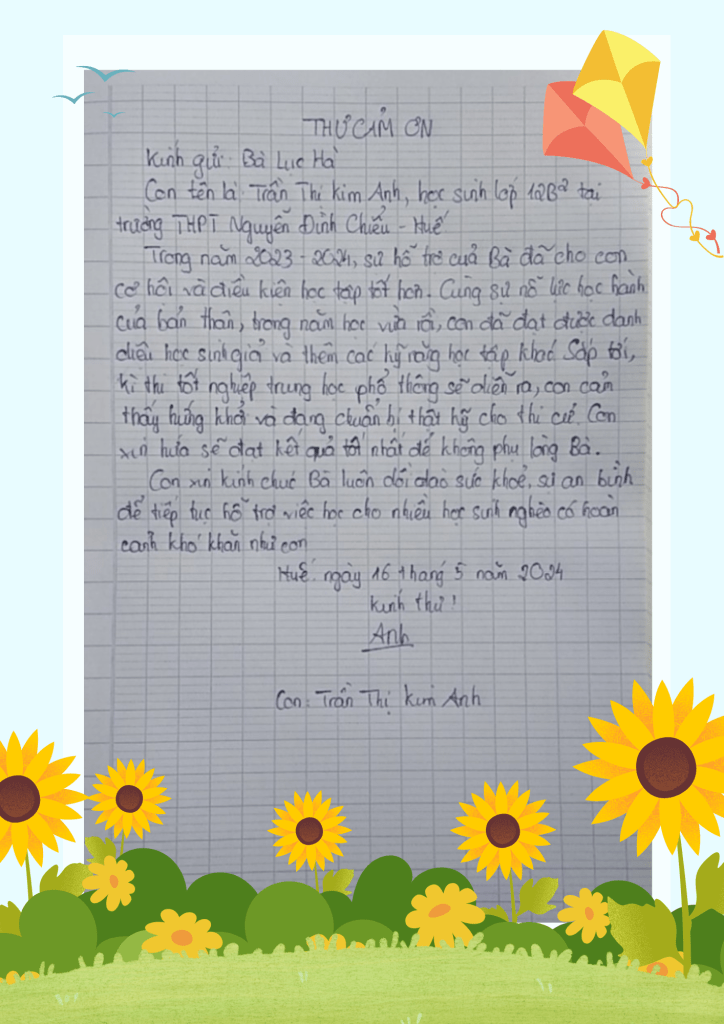 THƯ CẢM ƠN
Kính gửi: Bà Lục Hà
Con tên là Trần Thị Kim Anh, học sinh lớp 12B2 tại
trường THPT Nguyễn Đình Chiểu - Huế
Trong năm 2023 - 2024, sự hỗ trợ cuả Bà đã cho con
cơ hội và điều kiện học tập tốt hơn. Cùng sự nỗ lực học hành
của bản thân, trong năm học vừa rồi, con đã đạt được danh
hiệu học sinh giỏi và thêm các kỹ năng học tập khác. Sắp tới,
kì thi tốt nghiệp trung học phổ thông sẽ diễn ra, con cảm
thấy hứng khởi và đang chuẩn bị thật kỹ cho thi cử. Con
xin hứa sẽ đạt kết quả tốt nhất để không phụ lòng Bà.
Con xin kính chúc Bà luôn dồi dào sức khoẻ, sự an bình
để tiếp tục hỗ trợ việc học cho nhiều học sinh nghèo có hoàn
cảnh khó khăn như con
Huế, ngày 16 tháng 5 năm 2024
Kính thư!
Anh
Con: Trần Thị Kim Anh